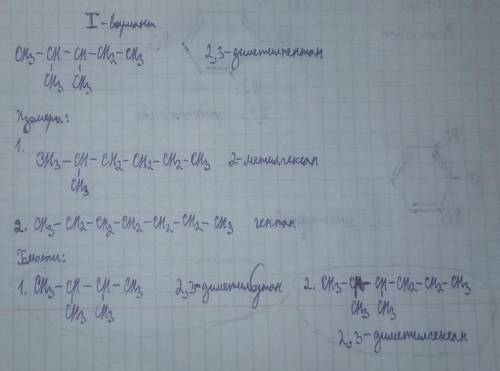 I - вариант
CH3 - CH - CH - CH2 - CH3 2,3-диметилпентан
CH3 CH3
Изомеры:
1.
CH3 - CH - CH2 - CH2 - CH2 - CH3 2-метилгексан
CH3
2. CH3 - CH2 - CH2 - CH2 - CH2 - CH2 - CH3 гептан
1. CH3 - CH - CH - CH3 2,3-диметилбутан 2. CH3 - CH - CH - CH2 - CH2 - CH3
CH3 CH3 CH3 CH3
2,3-диметилгексан